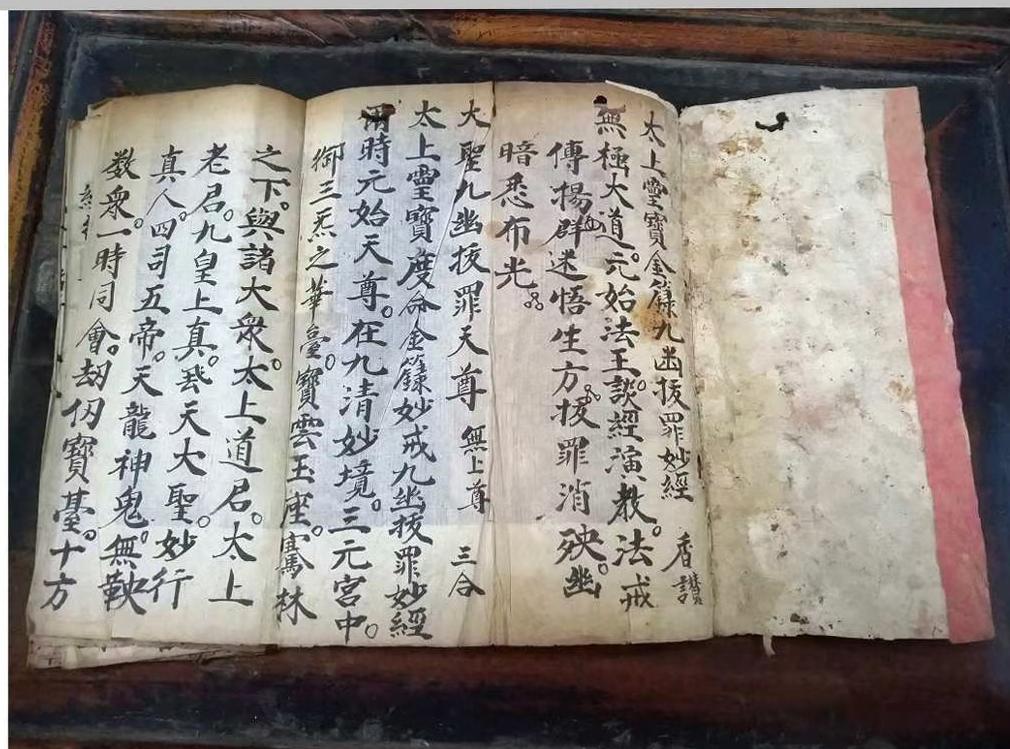 太上靈寶金籙九幽拔罪妙經 香讚
無極大道。元始法王。談經演教。法戒
傳揚。群迷悟生方。拔罪消殃。幽
暗悉布光。
大聖九幽拔罪天尊 無上尊 三合
太上靈寶度命金籙妙戒九幽拔罪妙經
爾時元始天尊。在九清妙境。三元宮中。
御三炁之華臺。寶雲玉座。騫林
之下。與諸大眾。太上道君。太上
老君。九皇上真。飛天大聖。妙行
真人。四司五帝。天龍神鬼。無鞅
数眾。一時同會。劫仞寶臺。十方